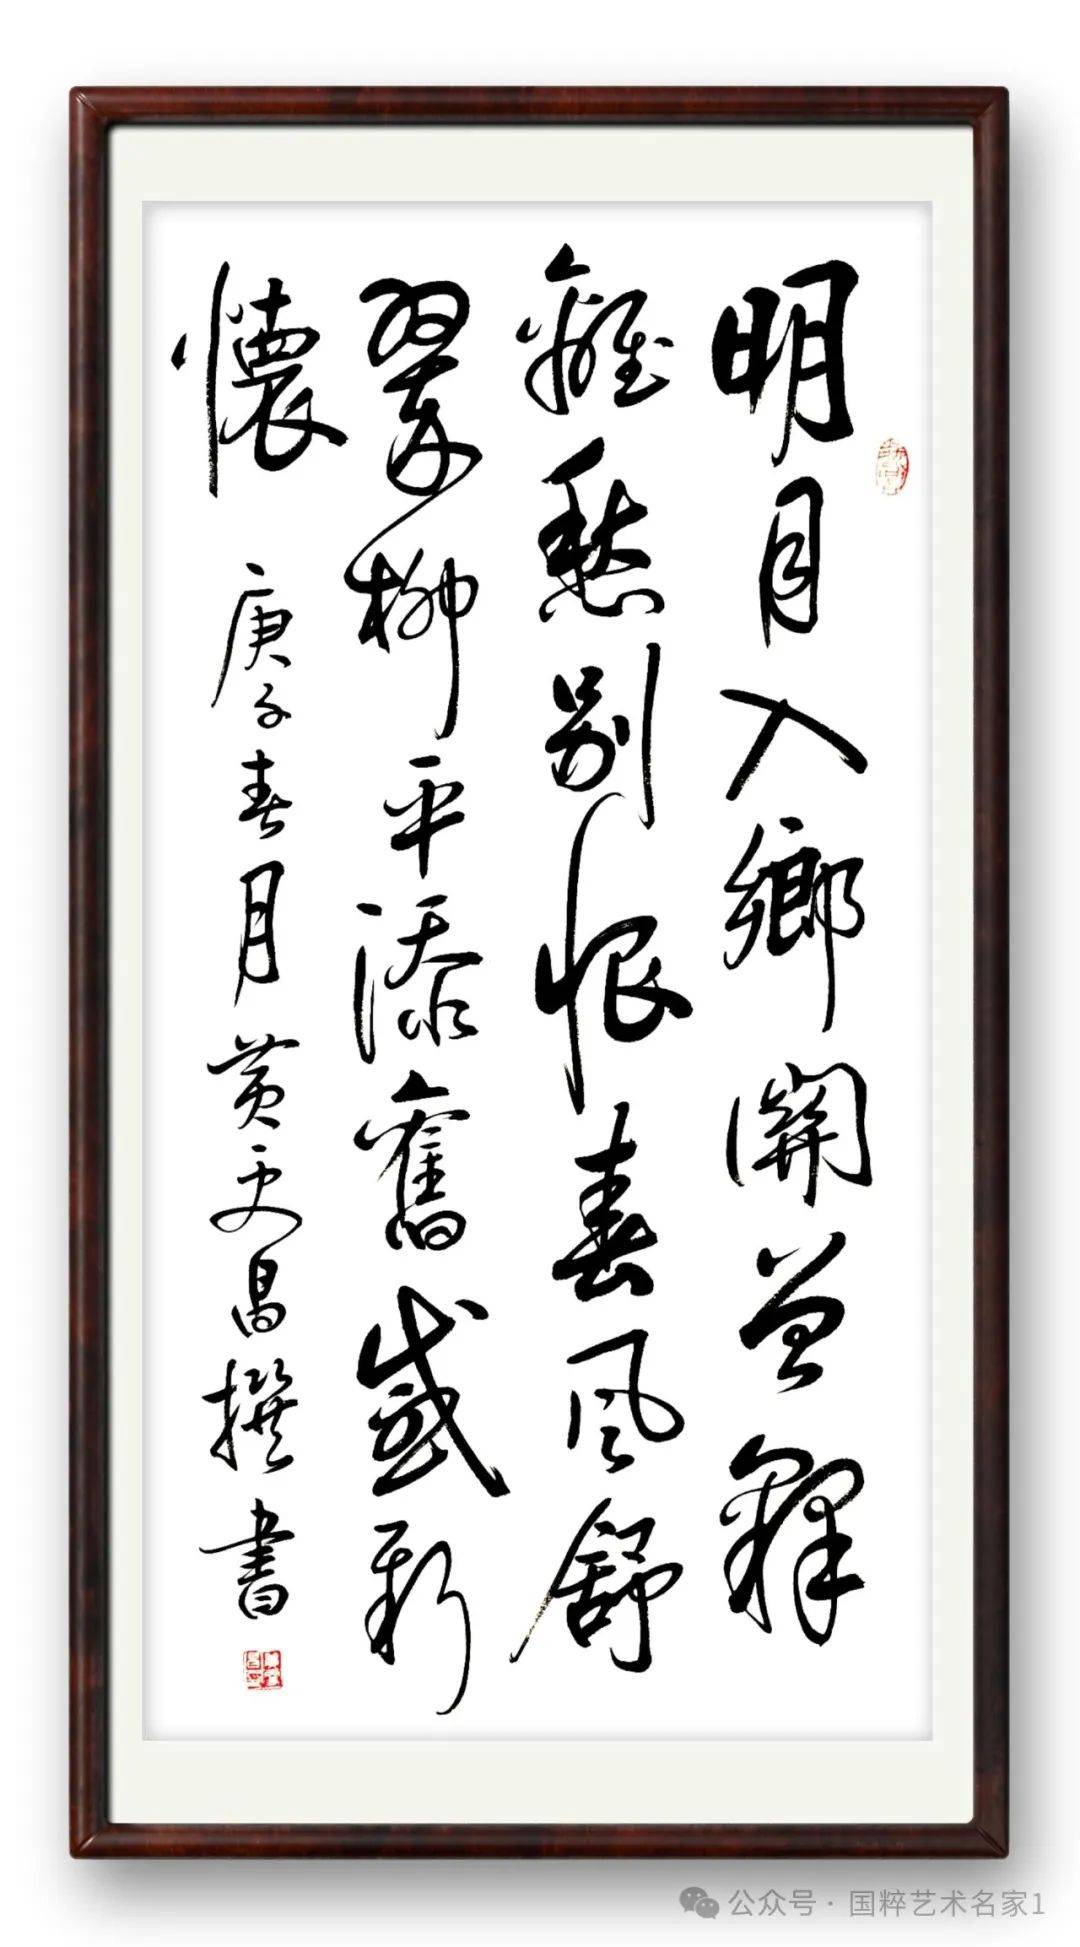 明月入鄉關曾釋
離愁別恨春風舒
翠柳平添舊感新
懷
庚子春月黄昌撰書
公众号 · 国粹艺术名家1